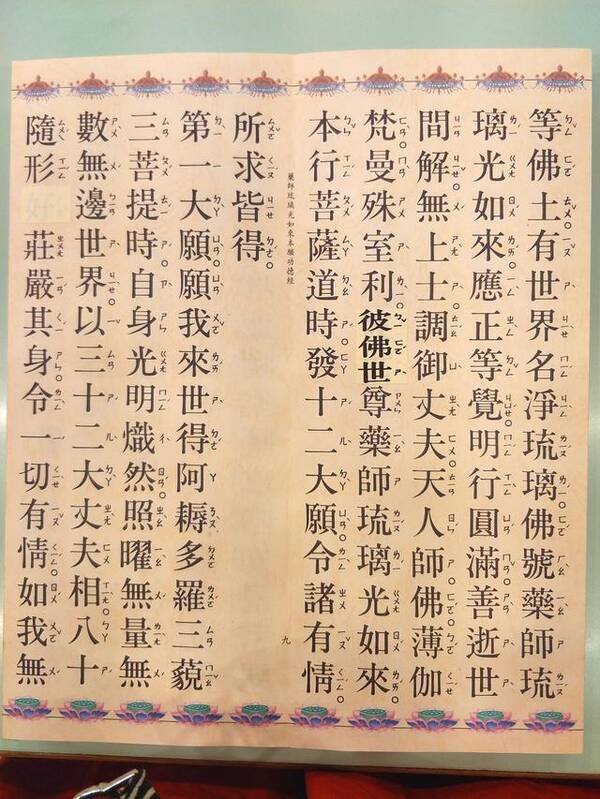 等佛土有世界名淨琉璃佛號藥師琉
璃光如來應正等覺明行圓滿善逝世
間解無上士調御丈夫天人師佛薄伽
梵曼殊室利彼佛世尊藥師琉璃光如來
本行菩薩道時發十二大願令諸有情
藥師琉璃光如來本願功德經
九
所求皆得
第一大願願我來世得阿耨多羅三藐
三菩提時自身光明熾然照曜無量無
數無邊世界以三十二大丈夫相八十
隨形好莊嚴其身令一切有情如我無